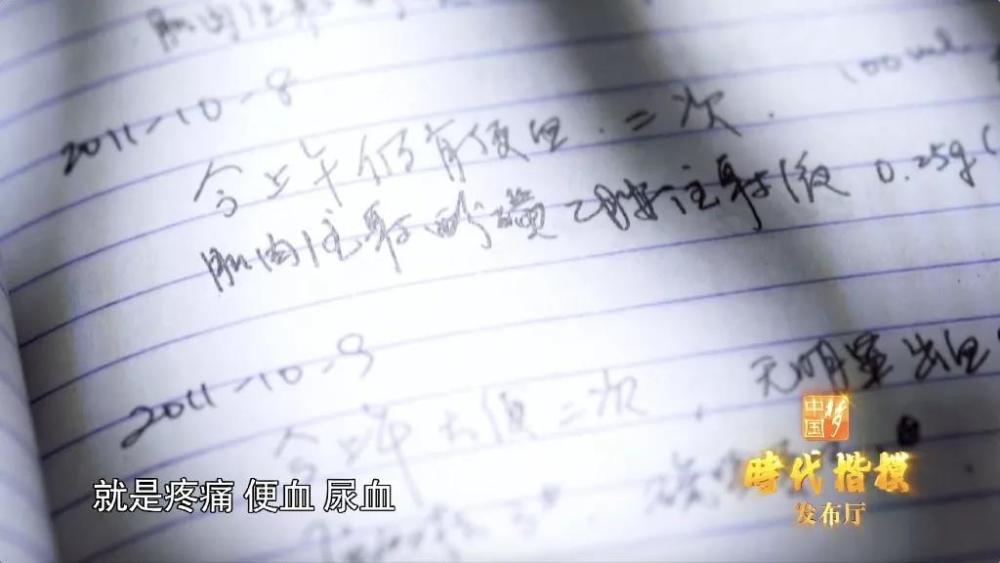 肌肉注射
2011-10-8 100ml
今上午仍有便血.二次.
肌肉注射酚磺乙胺注射液 0.25g(
2011-10-9
今上午大便二次,无明显出血
就是疼痛 便血 尿血
中国梦
時代楷模
发布厅